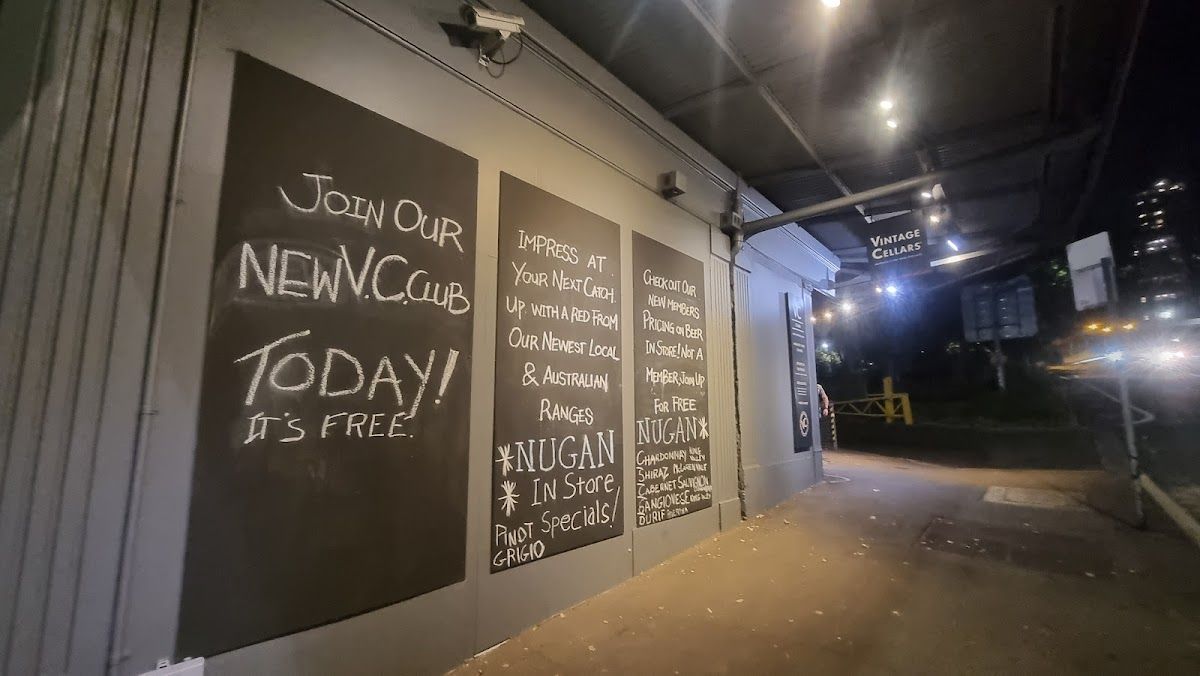 JOIN OUR
NEW V.C. CLUB
TODAY!
IT'S FREE.
IMPRESS AT
YOUR NEXT CATCH
UP WITH A RED FROM
OUR NEWEST LOCAL
& AUSTRALIAN
RANGES
NUGAN
IN STORE
SPECIALS!
PINOT
GRIGIO
CHECK OUT OUR
NEW MEMBERS
PRICING ON BEER
IN STORE! NOT A
MEMBER, JOIN UP
FOR FREE
NUGAN
CHARDONNAY KING VALLEY
SHIRAZ McLAREN VALE
CABERNET SAUVIGNON
SANGIOVESE KING VALLEY
DURIF
VINTAGE
CELLARS